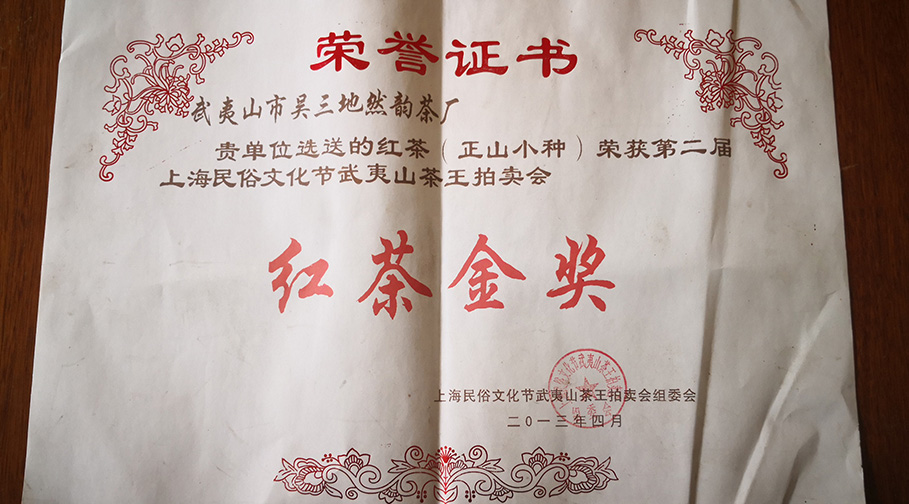 荣誉证书
武夷山市吴三地然韵茶厂
贵单位选送的红茶(正山小种)荣获第二届
上海民俗文化节武夷山茶王拍卖会
红茶金奖
上海民俗文化节武夷山茶王拍卖会组委会
二0一三年四月